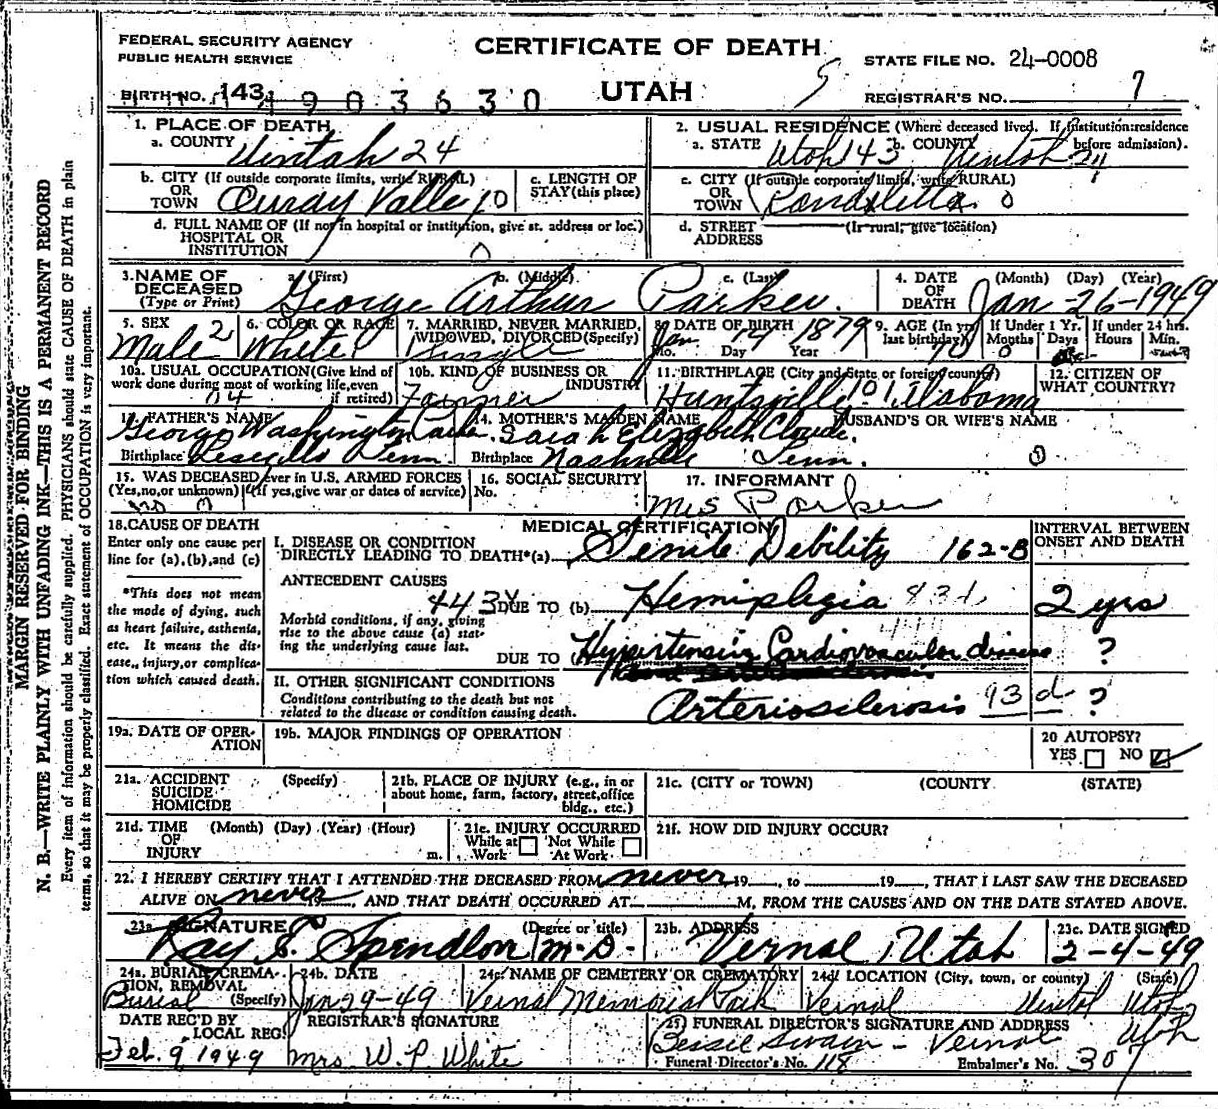 FEDERAL SECURITY AGENCY
PUBLIC HEALTH SERVICE
CERTIFICATE OF DEATH
UTAH
STATE FILE NO. 24-0008
REGISTRAR'S NO. 7
BIRTH NO. 143
4903630
MARGIN RESERVED FOR BINDING
N. B.—WRITE PLAINLY WITH UNFADING INK—THIS IS A PERMANENT RECORD
Every item of information should be carefully supplied. PHYSICIANS should state CAUSE OF DEATH in plain
terms, so that it may be properly classified. Exact statement of OCCUPATION is very important.
1. PLACE OF DEATH
a. COUNTY Uintah 24
2. USUAL RESIDENCE (Where deceased lived. If institution: residence before admission).
a. STATE Utah 143 b. COUNTY Uintah 24
b. CITY (If outside corporate limits, write RURAL) OR TOWN Ouray Valley 0
c. LENGTH OF STAY (this place)
c. CITY (If outside corporate limits, write RURAL) OR TOWN Randlett 0
d. FULL NAME OF (If not in hospital or institution, give st. address or loc.) HOSPITAL OR INSTITUTION 0
d. STREET ADDRESS (If rural, give location)
3. NAME OF DECEASED (Type or Print) a. (First) George b. (Middle) Arthur c. (Last) Parker.
4. DATE OF DEATH (Month) (Day) (Year) Jan-26-1949
5. SEX Male 2
6. COLOR OR RACE White
7. MARRIED, NEVER MARRIED, WIDOWED, DIVORCED (Specify) Single
8. DATE OF BIRTH Jan. 14 1879 Mo. Day Year
9. AGE (In yrs. last birthday) 70
If Under 1 Yr. Months 0 Days
If under 24 hrs. Hours Min.
10a. USUAL OCCUPATION (Give kind of work done during most of working life, even if retired) 04
10b. KIND OF BUSINESS OR INDUSTRY Farmer
11. BIRTHPLACE (City and State or foreign country) Huntsville Alabama
12. CITIZEN OF WHAT COUNTRY?
13. FATHER'S NAME George Washington Parker.
Birthplace Tenn
14. MOTHER'S MAIDEN NAME Sarah Elizabeth Cloude.
Birthplace Nashville Tenn.
HUSBAND'S OR WIFE'S NAME
0
15. WAS DECEASED ever in U.S. ARMED FORCES (Yes, no, or unknown) (If yes, give war or dates of service) no 0
16. SOCIAL SECURITY No.
17. INFORMANT Mrs Parker
18. CAUSE OF DEATH
Enter only one cause per line for (a), (b), and (c)
*This does not mean the mode of dying, such as heart failure, asthenia, etc. It means the disease, injury, or complication which caused death.
MEDICAL CERTIFICATION
INTERVAL BETWEEN ONSET AND DEATH
I. DISEASE OR CONDITION DIRECTLY LEADING TO DEATH*(a) Senile Debility 162-B
ANTECEDENT CAUSES
Morbid conditions, if any, giving rise to the above cause (a) stating the underlying cause last.
443X DUE TO (b) Hemiplegia 83d 2 yrs
DUE TO Hypertensive Cardiovascular disease ?
II. OTHER SIGNIFICANT CONDITIONS
Conditions contributing to the death but not related to the disease or condition causing death.
Arteriosclerosis 93 d ?
19a. DATE OF OPERATION
19b. MAJOR FINDINGS OF OPERATION
20 AUTOPSY?
YES NO
21a. ACCIDENT SUICIDE HOMICIDE (Specify)
21b. PLACE OF INJURY (e.g., in or about home, farm, factory, street, office bldg., etc.)
21c. (CITY or TOWN) (COUNTY) (STATE)
21d. TIME OF INJURY (Month) (Day) (Year) (Hour) m.
21e. INJURY OCCURRED While at Work Not While At Work
21f. HOW DID INJURY OCCUR?
22. I HEREBY CERTIFY THAT I ATTENDED THE DECEASED FROM never 19__, to ______ 19__, THAT I LAST SAW THE DECEASED
ALIVE ON never, AND THAT DEATH OCCURRED AT ______ M, FROM THE CAUSES AND ON THE DATE STATED ABOVE.
23a. SIGNATURE (Degree or title) Ray E. Spendlove M.D.
23b. ADDRESS Vernal, Utah
23c. DATE SIGNED 2-4-49
24a. BURIAL, CREMATION, REMOVAL (Specify) Burial
24b. DATE Jan 29-49
24c. NAME OF CEMETERY OR CREMATORY Vernal Memorial Park
24d. LOCATION (City, town, or county) (State) Vernal Uintah Utah
DATE REC'D BY LOCAL REG. Feb. 9, 1949
REGISTRAR'S SIGNATURE Mrs. W. P. White
25. FUNERAL DIRECTOR'S SIGNATURE AND ADDRESS
Bessie Swain - Vernal Utah
Funeral Director's No. 118 Embalmer's No. 307